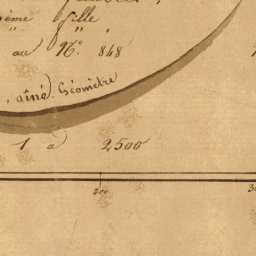 ème fille
" "
au N.º 848
, aîné. Géomètre
1 à 2500
200